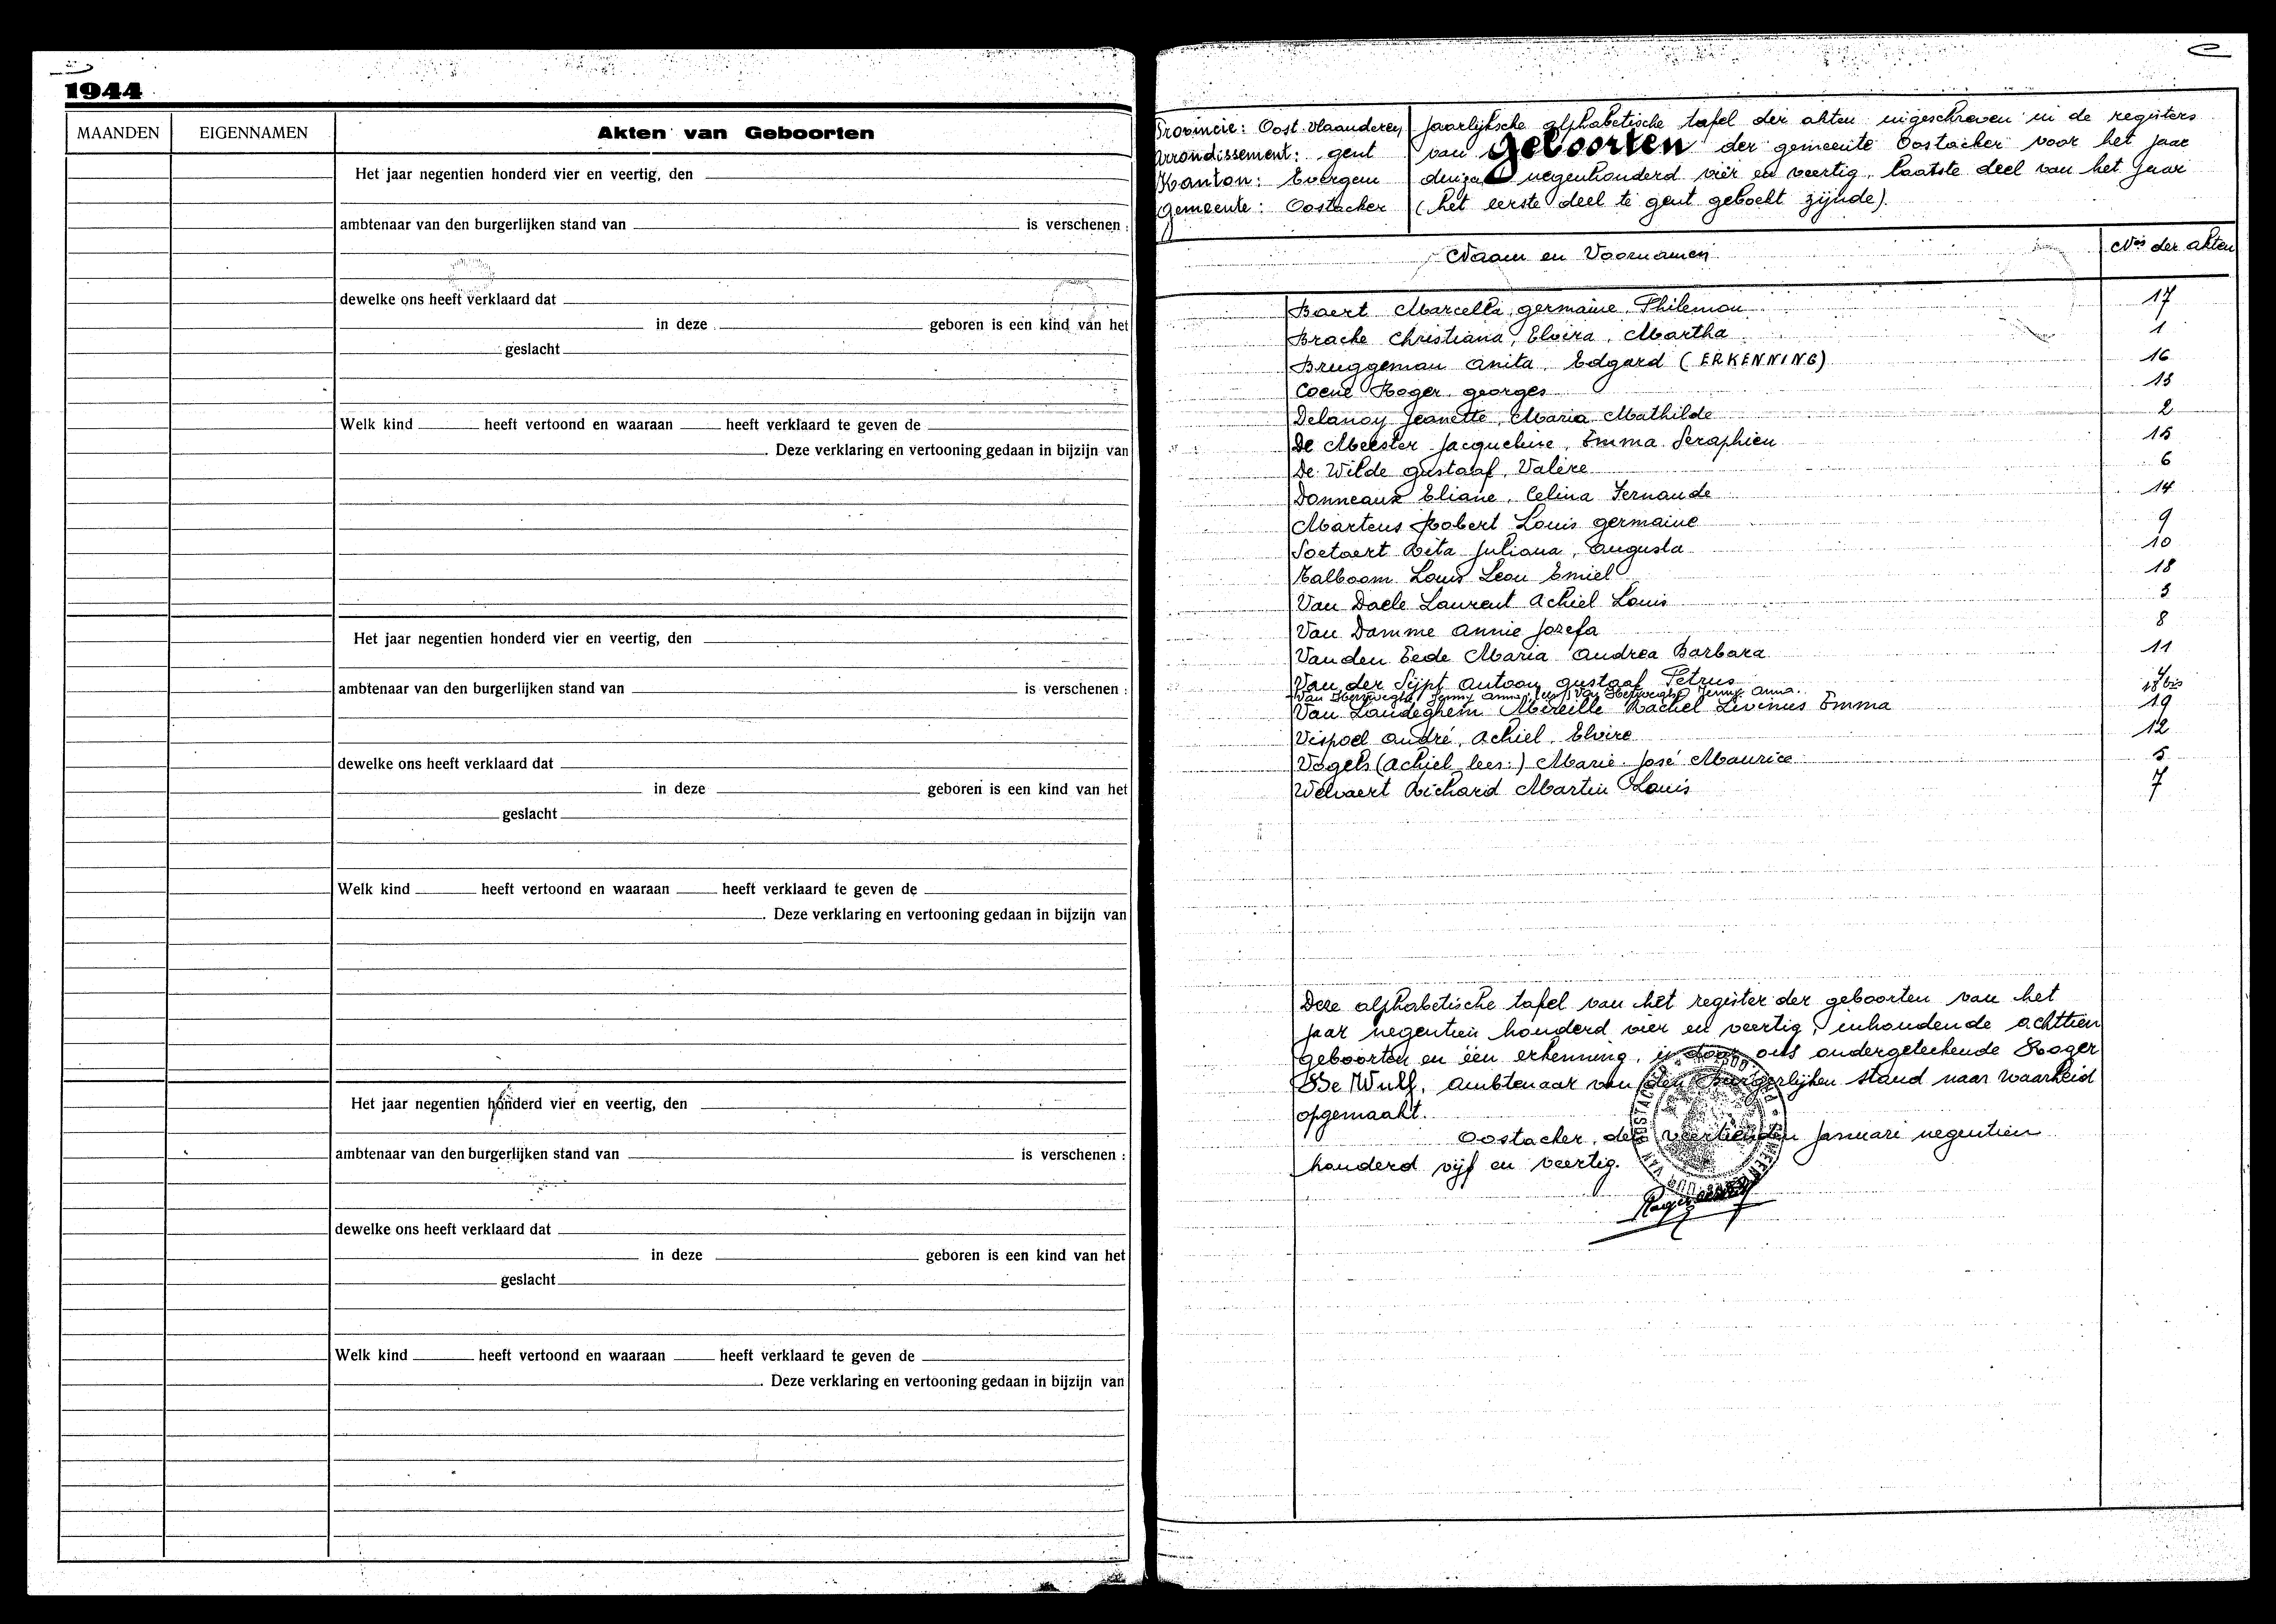 1944
MAANDEN
EIGENNAMEN
Akten van Geboorten
Het jaar negentien honderd vier en veertig, den
ambtenaar van den burgerlijken stand van is verschenen :
dewelke ons heeft verklaard dat
in deze geboren is een kind van het
geslacht
Welk kind heeft vertoond en waaraan heeft verklaard te geven de
. Deze verklaring en vertooning gedaan in bijzijn van
Het jaar negentien honderd vier en veertig, den
ambtenaar van den burgerlijken stand van is verschenen :
dewelke ons heeft verklaard dat
in deze geboren is een kind van het
geslacht
Welk kind heeft vertoond en waaraan heeft verklaard te geven de
. Deze verklaring en vertooning gedaan in bijzijn van
Het jaar negentien honderd vier en veertig, den
ambtenaar van den burgerlijken stand van is verschenen :
dewelke ons heeft verklaard dat
in deze geboren is een kind van het
geslacht
Welk kind heeft vertoond en waaraan heeft verklaard te geven de
. Deze verklaring en vertooning gedaan in bijzijn van
Provincie: Oost Vlaanderen
Arrondissement: Gent
Kanton: Evergem
Gemeente: Oostacker
Jaarlijksche alphabetische tafel der akten ingeschreven in de registers
van Geboorten der gemeente Oostacker voor het jaar
negenhonderd vier en veertig, laatste deel van het jaar
(het eerste deel te Gent geboekt zijnde).
Naam en Voornamen
Nos der akten
Baert Marcella, Germaine, Philemon 17
Brache Christiana, Elvira, Martha 1
Bruggeman Anita, Edgard (ERKENNING) 16
Coene Roger, Georges 13
Delanoy Jeanette, Maria Mathilde 2
De Meester Jacqueline, Emma Seraphien 15
De Wilde Gustaaf, Valère 6
Donneaux Eliane, Celina Fernande 14
Martens Robert Louis Germaine 9
Soetaert Rita Juliana, Augusta 10
Talboom Louis Leon Emiel 18
Van Daele Laurent Achiel Louis 3
Van Damme Annie Jozefa 8
Van den Eede Maria Andrea Barbara 11
Van der Sijpt Antoon Gustaaf Petrus 4
Jenny Anna 18 bis
Van Landeghem Mireille Rachel Livinus Emma 19
Vispoel André, Achiel, Elvire 12
Vogels (Achiel lees:) Marie José Maurice 5
Welvaert Richard Martin Louis 7
Deze alphabetische tafel van het register der geboorten van het
jaar negentien honderd vier en veertig, inhoudende achttien
geboorten en één erkenning, is door ons ondergeteekende Roger
De Wulf, ambtenaar van den burgerlijken stand naar waarheid
opgemaakt.
Oostacker, den veertienden Januari negentien
honderd vijf en veertig.